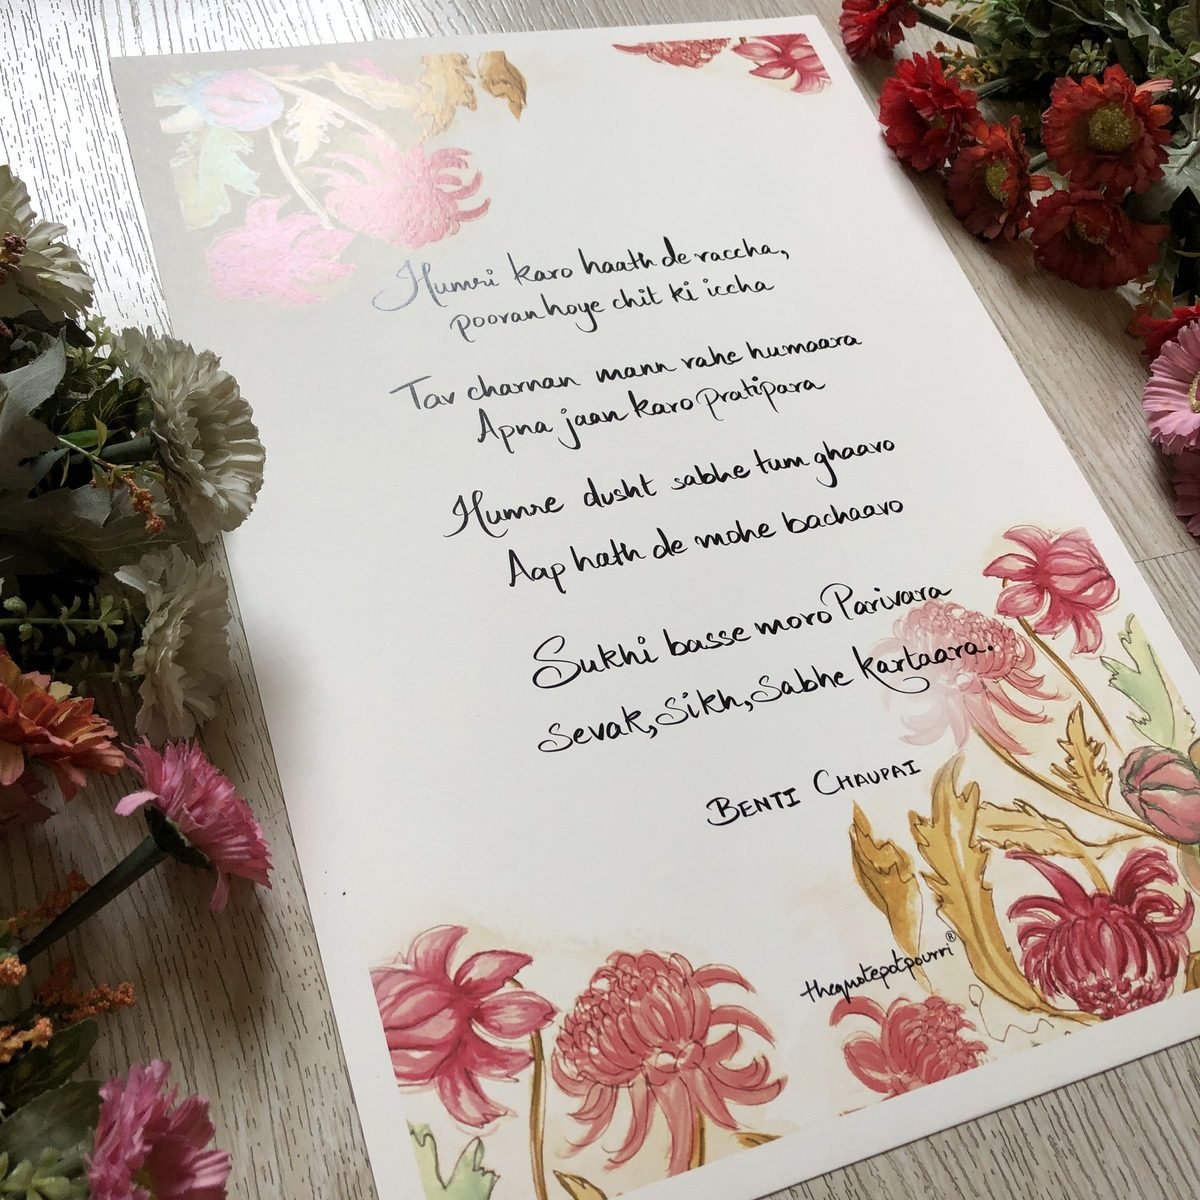 Humri karo haath de raccha,
pooran hoye chit ki iccha
Tav charnan mann rahe humaara
Apna jaan karo Pratipara
Humre dusht sabhe tum ghaavo
Aap hath de mohe bachaavo
Sukhi basse moro Parivara
Sevak, Sikh, Sabhe kartaara.
BENTI CHAUPAI
thequotepotpourri®